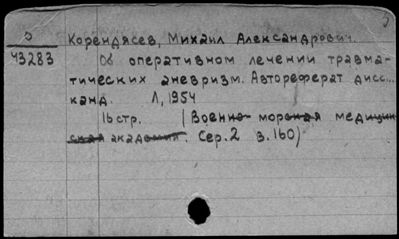 Э
43283
Корендясев, Михаил Александрович.
Об оперативном лечении травма-
тических аневризм. Автореферат дисс...
канд. Л, 1954
16 стр. (Военно-морская медицин
ская академия. Сер. 2 в. 160)